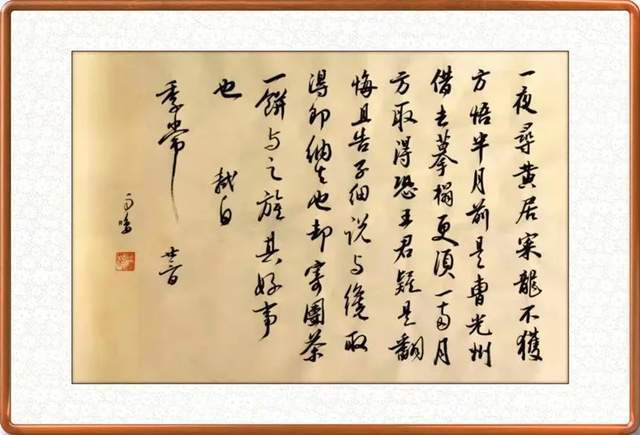 一夜尋黄居寀龍不獲
方悟半月前是曹光州
借去摹搨更須一兩月
方取得恐王君疑是翻
悔且告子細說与纔取
得即納去也却寄團茶
一餅与之旌其好事
也 軾白
季常
廿三日